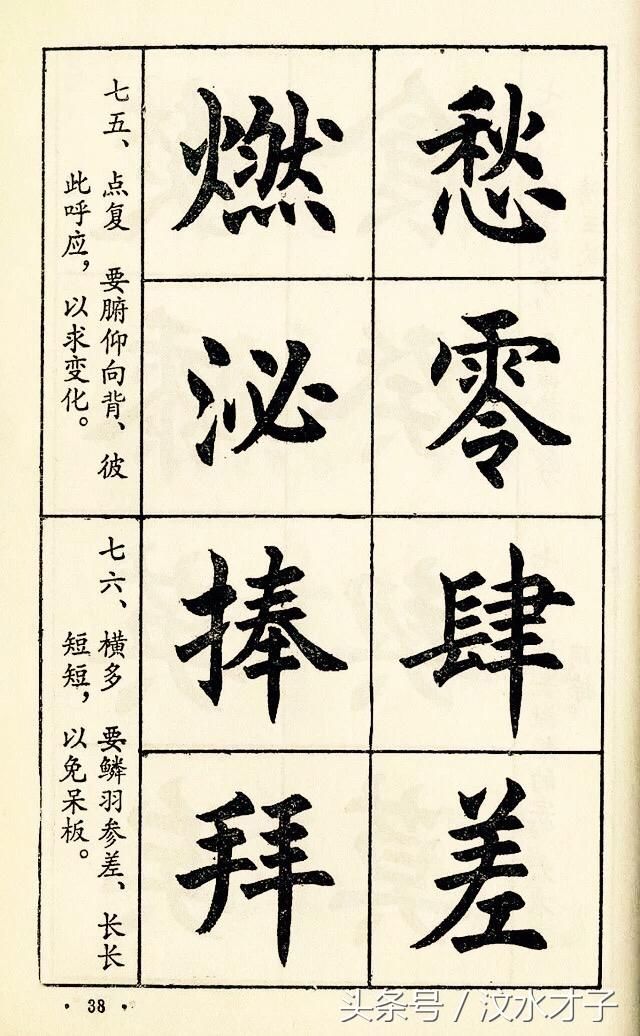 七五、点复　要腑仰向背、彼
此呼应，以求变化。
燃　愁
泌　零
七六、横多　要鳞羽参差、长长
短短，以免呆板。
捧　肆
拜　差
·38·
头条号／汶水才子